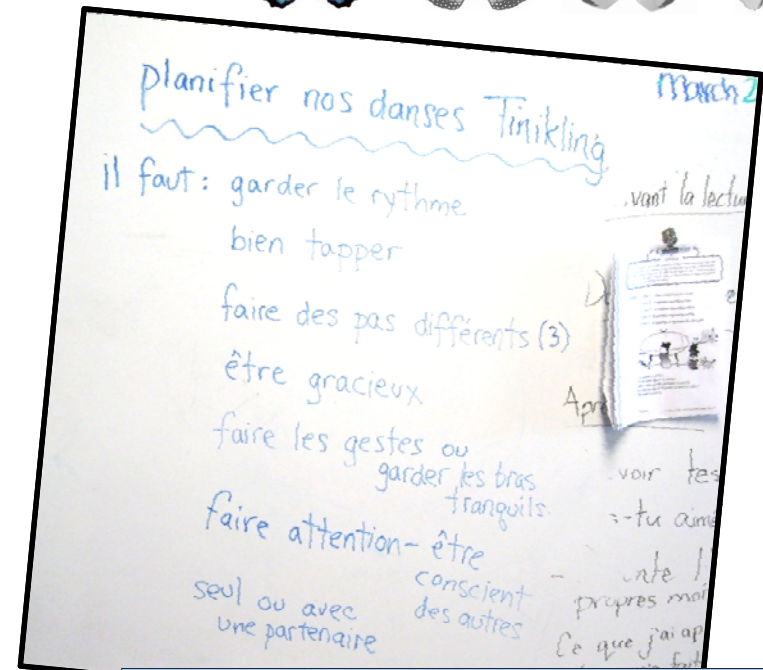 planifier nos danses Tinikling
March 2
il faut: garder le rythme
bien tapper
faire des pas différents (3)
être gracieux
faire les gestes ou
garder les bras
tranquils
faire attention - être
conscient
des autres
seul ou avec
une partenaire
vant la lectu
Apr
voir tes
-tu aim
propres mo
Ce que j'ai ap